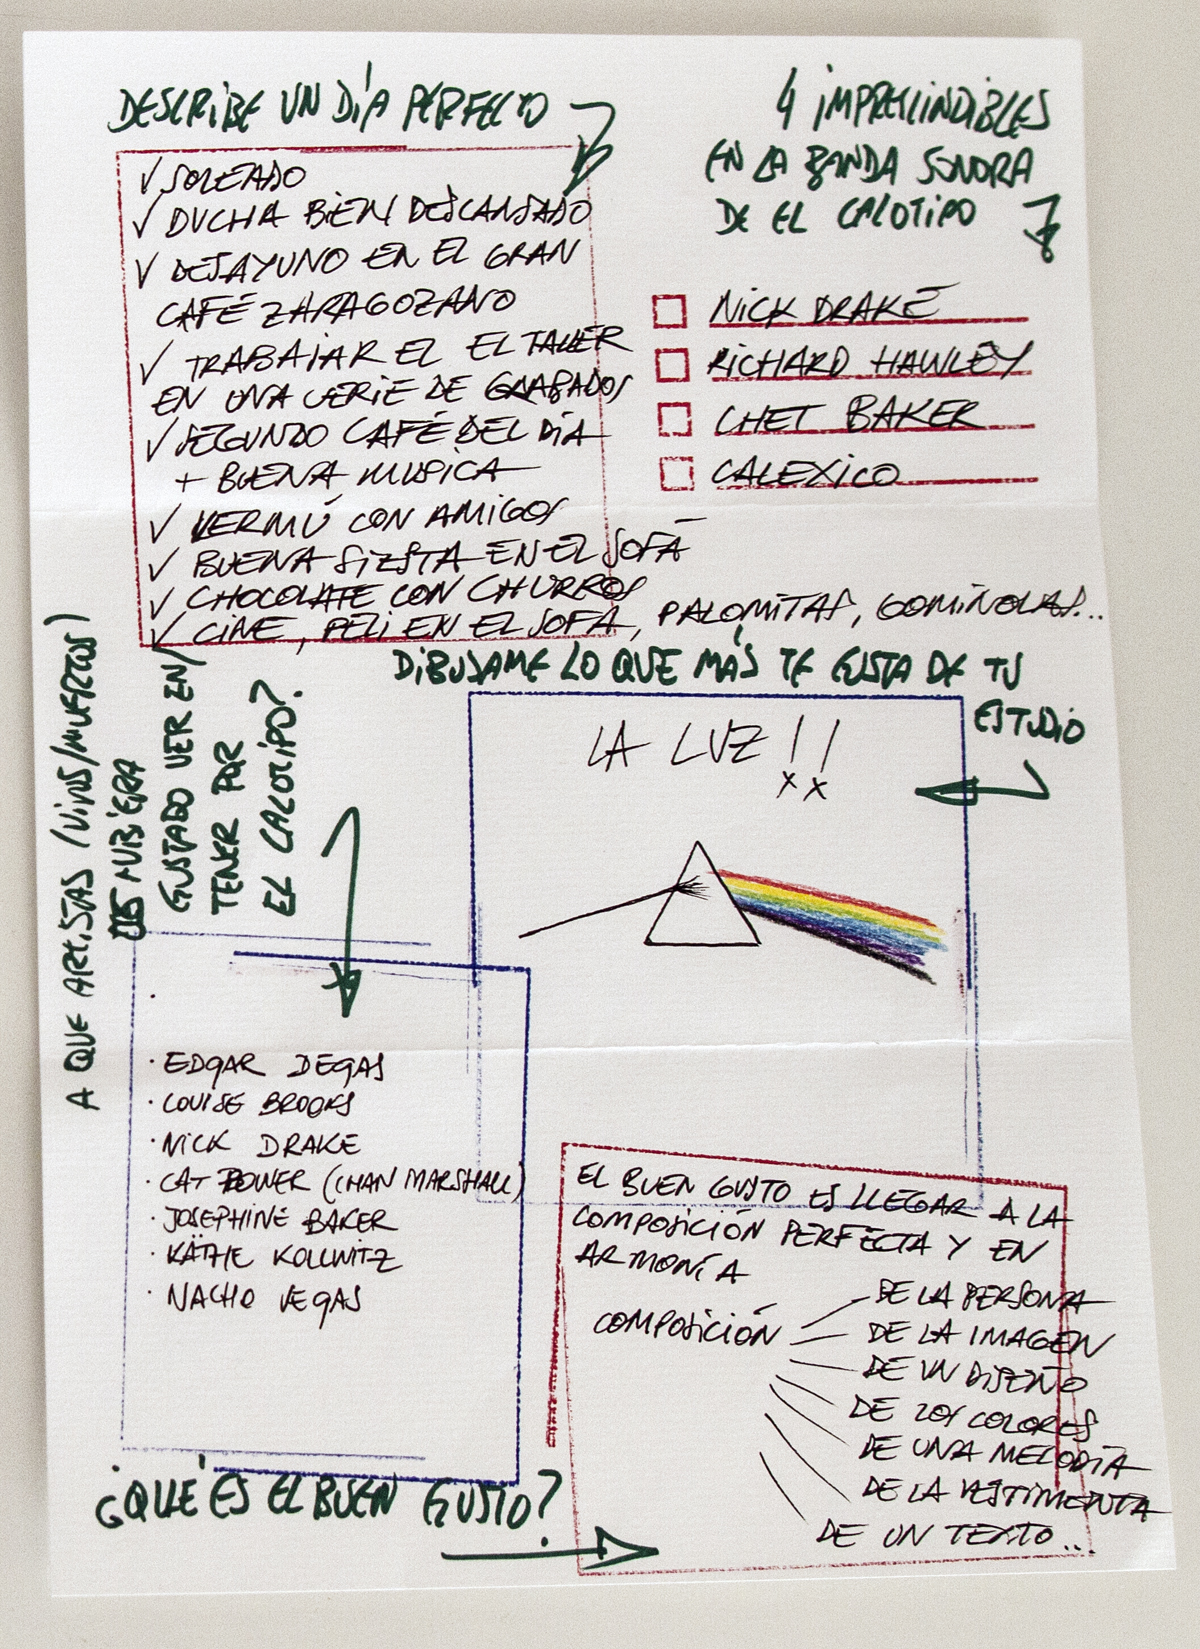 DESCRIBE UN DÍA PERFECTO
✓ SOLEADO
✓ DUCHA BIEN DESCANSADO
✓ DESAYUNO EN EL GRAN
CAFÉ ZARAGOZANO
✓ TRABAJAR EL EL TALLER
EN UNA SERIE DE GRABADOS
✓ SEGUNDO CAFÉ DEL DÍA
+ BUENA MUSICA
✓ VERMÚ CON AMIGOS
✓ BUENA SIESTA EN EL SOFÁ
✓ CHOCOLATE CON CHURROS
✓ CINE, PELI EN EL SOFÁ, PALOMITAS, GOMINOLAS...
4 IMPRECINDIBLES
EN LA BANDA SONORA
DE EL CALOTIPO
NICK DRAKE
RICHARD HAWLEY
CHET BAKER
CALEXICO
DIBUJAME LO QUE MÁS TE GUSTA DE TU
ESTUDIO
LA LUZ !!
A QUE ARTISTAS (VIVOS/MUERTOS)
OS HUBIERA
GUSTADO VER EN/
TENER POR
EL CALOTIPO?
· EDGAR DEGAS
· LOUISE BROOKS
· NICK DRAKE
· CAT POWER (CHAN MARSHALL)
· JOSEPHINE BAKER
· KÄTHE KOLLWITZ
· NACHO VEGAS
¿QUÉ ES EL BUEN GUSTO?
EL BUEN GUSTO ES LLEGAR A LA
COMPOSICIÓN PERFECTA Y EN
ARMONÍA
COMPOSICIÓN
DE LA PERSONA
DE LA IMAGEN
DE UN DISEÑO
DE LOS COLORES
DE UNA MELODÍA
DE LA VESTIMENTA
DE UN TEXTO...